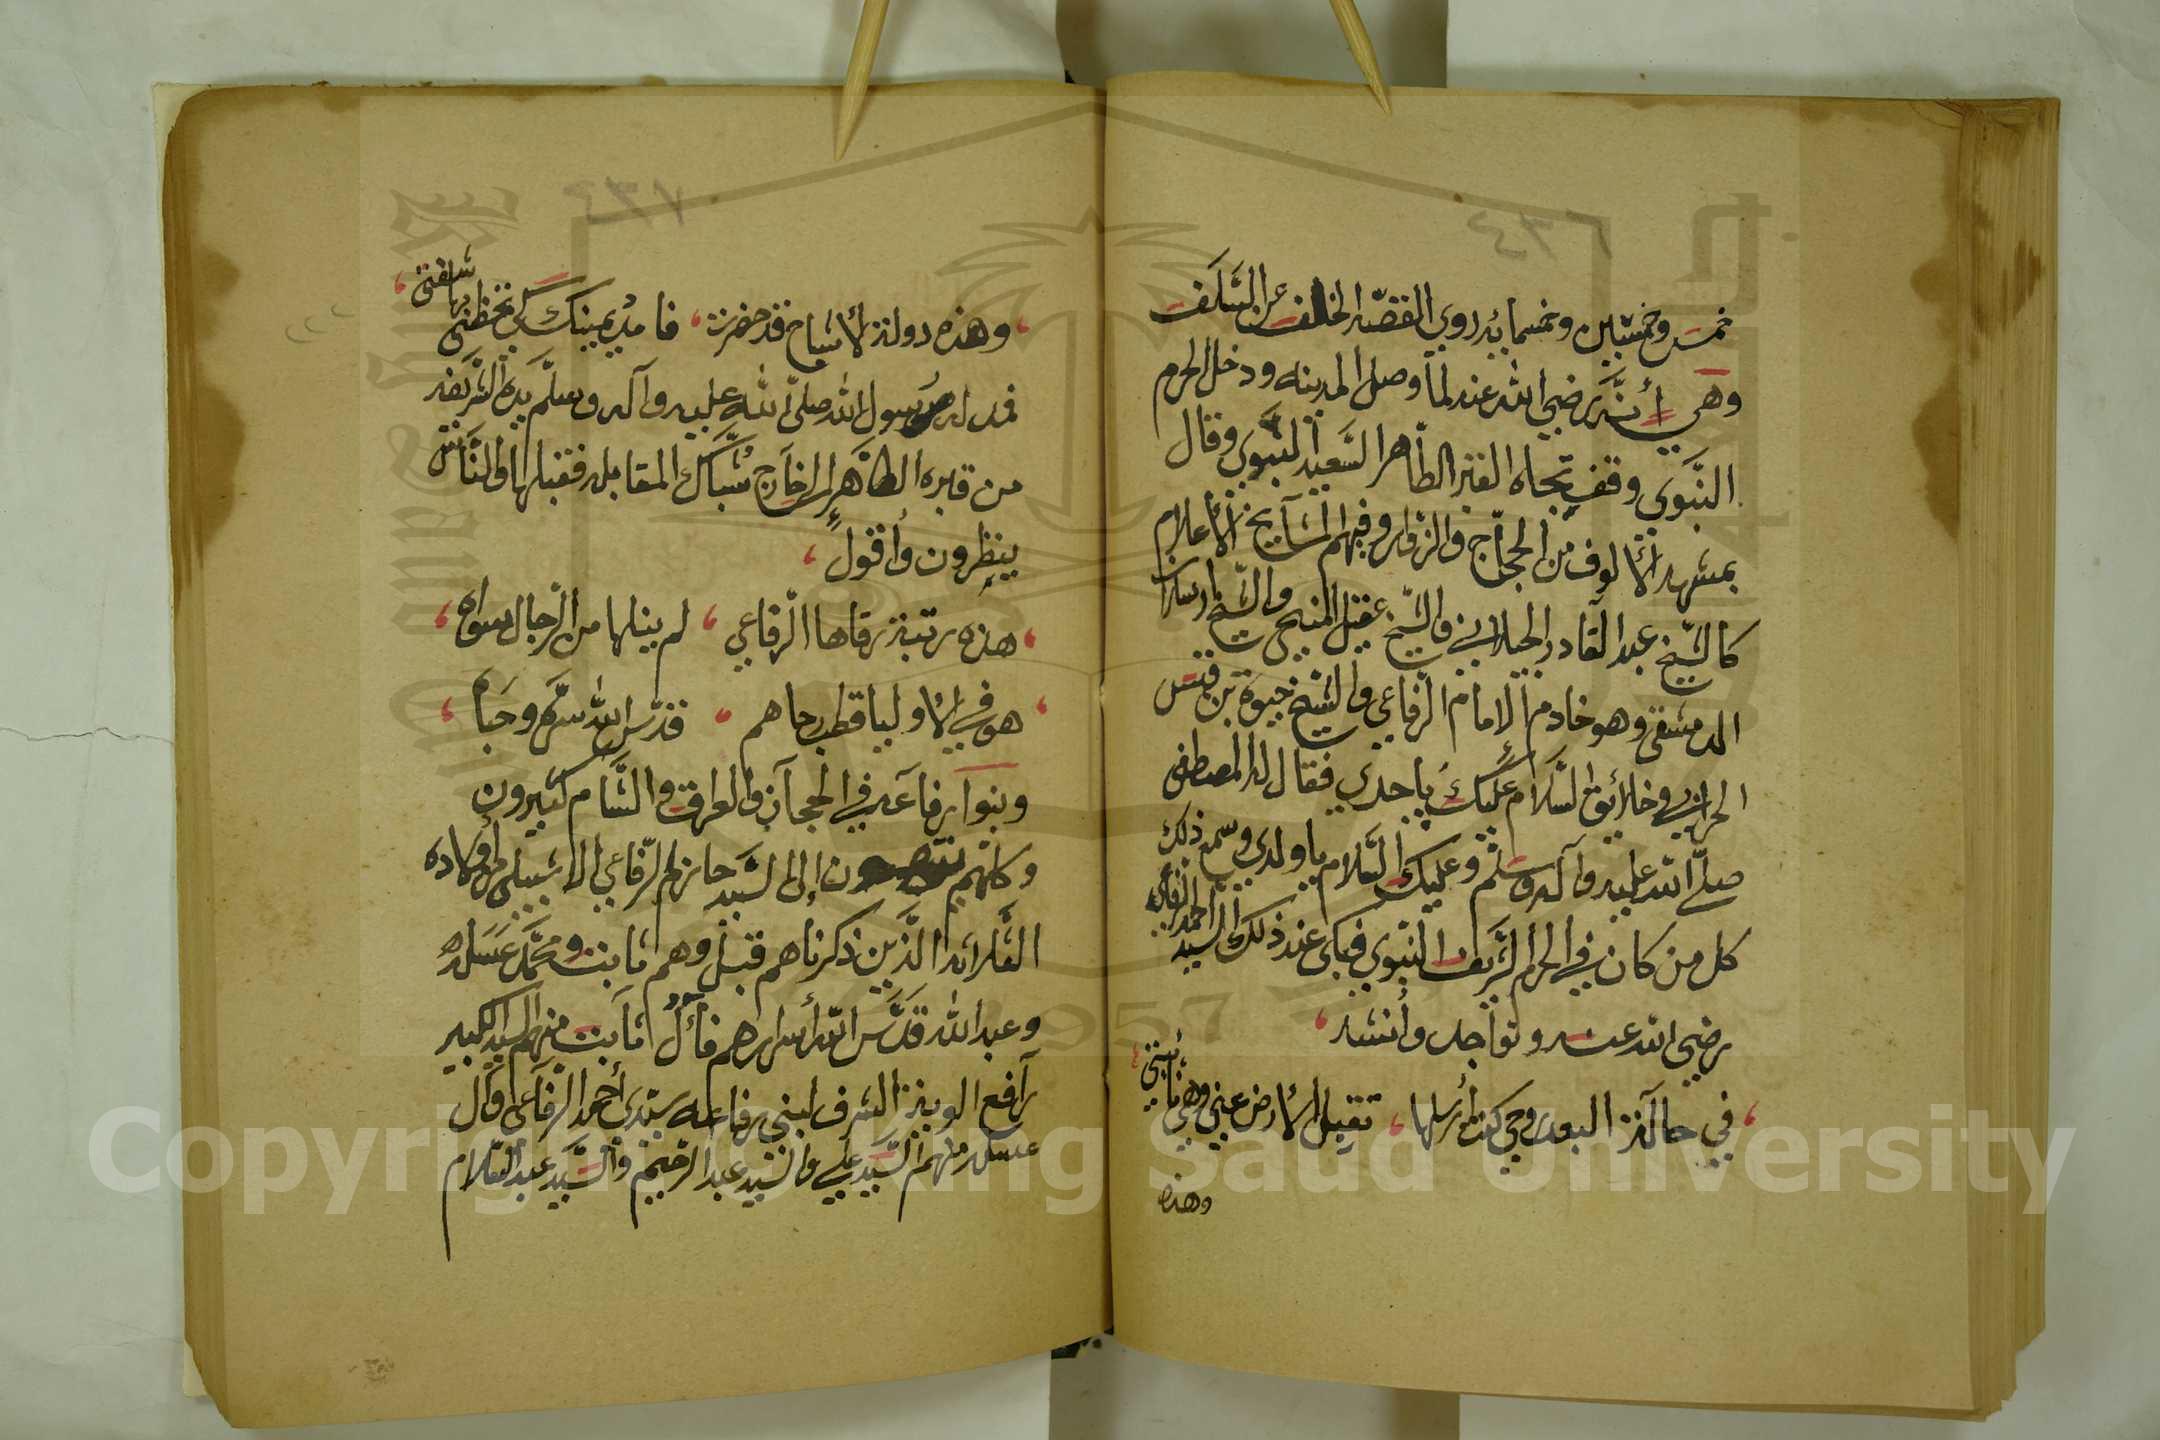 خمس وخمسين وخمسمايه روى القصه الخلف عن السلف
وهي أنه رضي الله عنه لما وصل المدينه ودخل الحرم
النبوي وقف تجاه القبر الطاهر السعيد النبوي وقال
بمشهد الألوف من الحجاج والزوار وفيهم المشايخ الأعلام
كالشيخ عبد القادر الجيلاني والشيخ عقيل المنبجي والشيخ ارسلان
الدمشقي وهو خادم الامام الرفاعي والشيخ حيوة بن قيس
الحراني وخلائق السلام عليك يا جدي فقال له المصطفى
صلى الله عليه وآله وسلم وعليك السلام يا ولدي وسمع ذلك
كل من كان في الحرم الشريف النبوي فبكى عند ذلك السيد احمد الرفاعي
رضي الله عنه وتواجد وأنشد
في حالة البعد روحي كنت أرسلها تقبل الأرض عني وهي نائبتي
وهذه
وهذه دولة الأشباح قد حضرت فامدد يمينك كي تحظى بها شفتي
فمد له رسول الله صلى الله عليه وآله وسلم يده الشريفه
من قبره الطاهر إلى خارج شباك المقابله فقبلها والناس
ينظرون وأقول
هذه رتبة رقاها الرفاعي لم ينلها من الرجال سواه
هو في الاوليا قطب رحاهم قدس الله سره وحباه
وبنوا رفاعه في الحجاز والعراق والشام كثيرون
وكلهم ون إلى السيد حازم الرفاعي الاشبيلي وأولاده
الثلاثه الذين ذكرناهم قبل وهم ثابت ومحمد عسله
وعبد الله قدس الله أسرارهم فأل ثابت منهم السيد الكبير
رافع الوية الشرف لبني رفاعه سيدي أحمد الرفاعي وآل
عسله منهم السيد علي والسيد عبد الرحيم والسيد عبد السلام
Copyright © King Saud University
1957